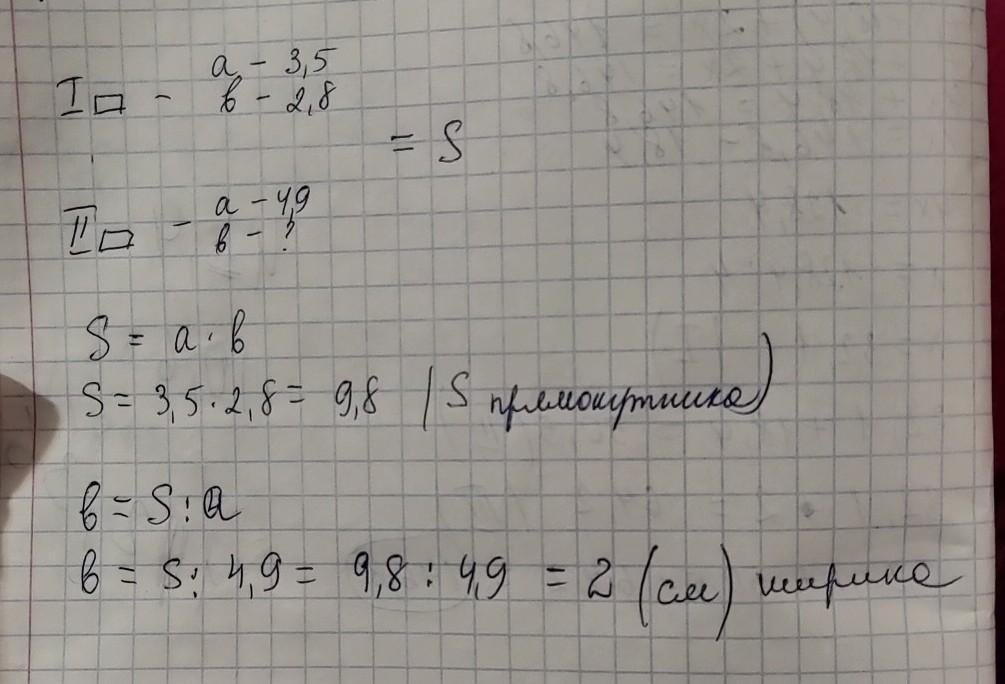 a - 3,5
I - в - 2,8
= S
a - 4,9
II - в - ?
S = a · в
S = 3,5 · 2,8 = 9,8 (S прямокутника)
в = S : a
в = S : 4,9 = 9,8 : 4,9 = 2 (см) ширина